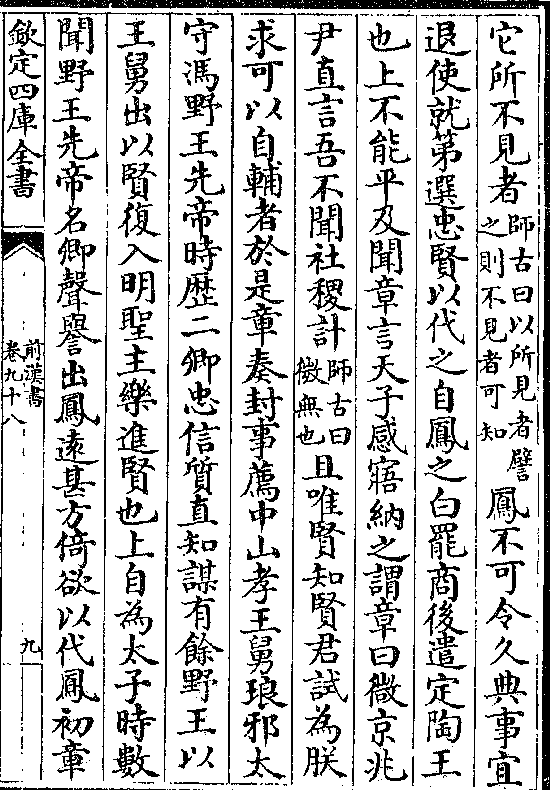 它所不見者師古曰以所見者譬之則不見者可知鳳不可令久典事宜
退使就第選忠賢以代之自鳳之白罷商後遣定陶王
也上不能平及聞章言天子感寤納之謂章曰微京兆
尹直言吾不聞社稷計師古曰微無也且唯賢知賢君試為朕
求可以自輔者於是章奏封事薦中山孝王舅琅邪太
守馮野王先帝時歴二卿忠信質直知謀有餘野王以
王舅出以賢復入明聖主樂進賢也上自為太子時數
聞野王先帝名卿聲譽出鳳遠甚方倚欲以代鳳初章
欽定四庫全書
前漢書
卷九十八
九